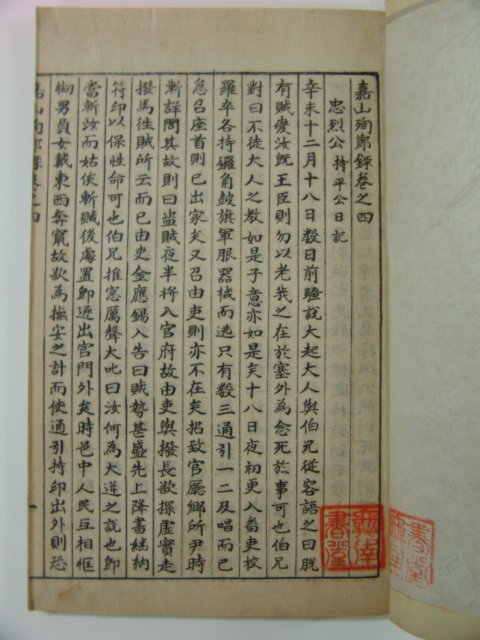 嘉山殉節錄卷之四
忠烈公持平公日記
辛未十二月十八日數日前騷說大起大人與伯兄從容語之曰脫
有賊變汝旣王臣則勿以老我之在於塞外為念死於事可也伯兄
對曰不徒大人之敎如是子意亦如是矣十八日夜初更入番吏校
羅卒各持鑼角鼓旗軍服器械而逃只有數三通引一二及唱而已
急召座首則已出家矣又召由吏則亦不在矣招致官廳鄕所尹時
漸詳問其故則曰盜賊夜半將入官府故由吏與撥長欲探虛實走
撥馬徃賊所云而已由吏金應錫入告曰賊勢甚盛先上降書継納
符印以保性命可也伯兄推窓厲聲大叱曰汝何為大逆之說也卽
當斬汝而姑俟斬賊後處置卽逐出官門外矣時邑中人民互相恇
㤼男負女戴東西奔竄故欲為撫安之計而使通引持印出外則恐
嘉山殉節錄卷之四 一
書堂